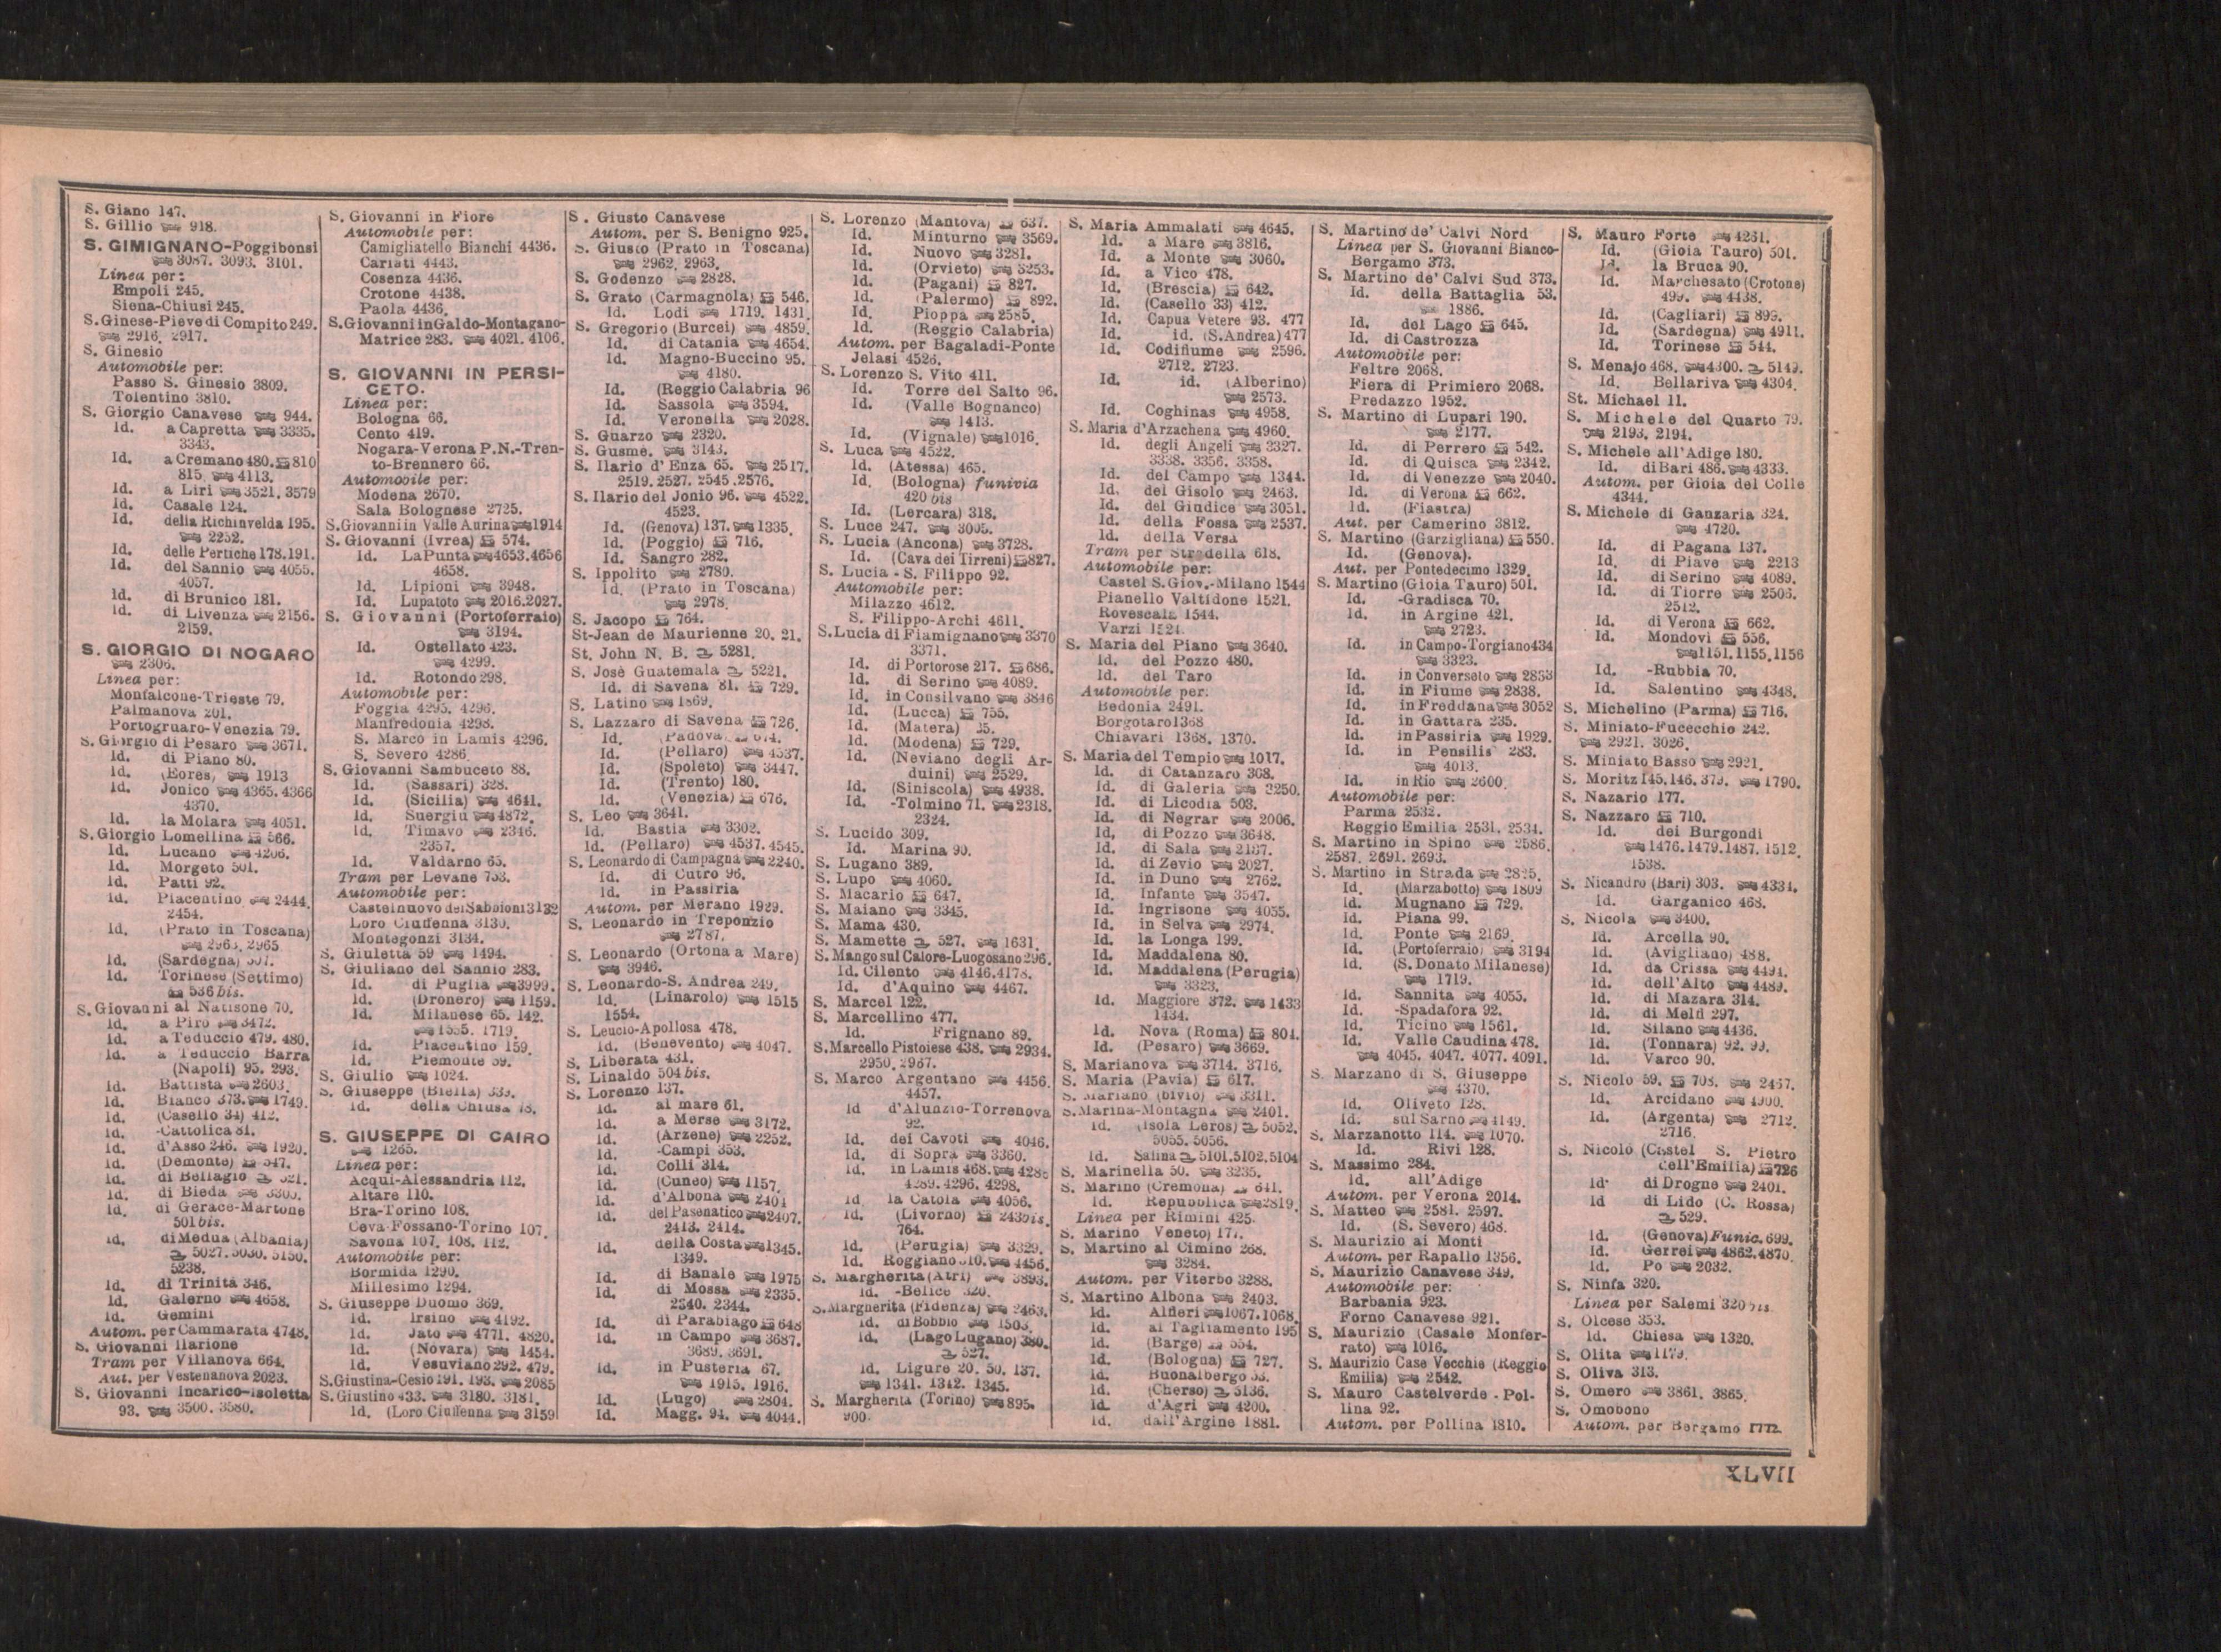 S. Giano 147.
S. Gillio 918.
S. GIMIGNANO-Poggibonsi
3087. 3093. 3101.
Linea per:
Empoli 245.
Siena-Chiusi 245.
S. Ginese-Pieve di Compito 249.
2916. 2917.
S. Ginesio
Automobile per:
Passo S. Ginesio 3809.
Tolentino 3810.
S. Giorgio Canavese 944.
Id. a Capretta 3335.
3343.
Id. a Cremano 480. 810
815. 4113.
Id. a Liri 3521. 3579
Id. Casale 124.
Id. della Richinvelda 195.
2252.
Id. delle Pertiche 178.191.
Id. del Sannio 4055.
4057.
Id. di Brunico 181.
Id. di Livenza 2156.
2159.
S. GIORGIO DI NOGARO
2306.
Linea per:
Monfalcone-Trieste 79.
Palmanova 201.
Portogruaro-Venezia 79.
S. Giorgio di Pesaro 3671.
Id. di Piano 80.
Id. (Eores) 1913
Id. Jonico 4365. 4366
4370.
Id. la Molara 4051.
S. Giorgio Lomellina 566.
Id. Lucano 4206.
Id. Morgeto 501.
Id. Patti 92.
Id. Piacentino 2444.
2454.
Id. (Prato in Toscana)
2963. 2965
Id. (Sardegna)
Id. Torinese (Settimo)
536 bis.
S. Giovanni al Natisone 70.
Id. a Piro 3472.
Id. a Teduccio 479. 480.
Id. a Teduccio Barra
(Napoli) 95. 293.
Id. Battista 2603
Id. Bianco 373. 1749.
Id. (Casello 34) 412.
Id. -Cattolica 81.
Id. d'Asso 246. 1920.
Id. (Demonte) 547.
Id. di Bellagio 521.
Id. di Bieda
Id. di Gerace-Martone
501 bis.
Id. di Medua (Albania)
5027. 5030. 5150.
5238.
Id. di Trinità 346.
Id. Galerno 4658.
Id. Gemini
Autom. per Cammarata 4748.
S. Giovanni Ilarione
Tram per Villanova 664.
Aut. per Vestenanova 2023.
S. Giovanni Incarico-Isoletta
93. 3500. 3580.
S. Giovanni in Fiore
Automobile per:
Camigliatello Bianchi 4436.
Cariati 4443.
Cosenza 4436.
Crotone 4438.
Paola 4436.
S. Giovanni in Galdo-Montagano-
Matrice 283. 4021. 4106.
S. GIOVANNI IN PERSI-
CETO.
Linea per:
Bologna 66.
Cento 419.
Nogara-Verona P.N.-Tren-
to-Brennero 66.
Automobile per:
Modena 2670.
Sala Bolognese 2725.
S. Giovanni in Valle Aurina 1914
S. Giovanni (Ivrea) 574.
Id. La Punta 4653.4656
4658.
Id. Lipioni 3948.
Id. Lupatoto 2016.2027.
S. Giovanni (Portoferraio)
3194.
Id. Ostellato 423.
4299.
Id. Rotondo 298.
Automobile per:
Foggia 4295. 4296.
Manfredonia 4298.
S. Marco in Lamis 4296.
S. Severo 4286
S. Giovanni Sambuceto 88.
Id. (Sassari) 328.
Id. (Sicilia) 4641.
Id. Suergiu 4872.
Id. Timavo 2346.
2357.
Id. Valdarno 65.
Tram per Levane 753.
Automobile per:
Castelnuovo dei Sabbioni 3132
Loro Ciuffenna 3130.
Montegonzi 3134.
S. Giuletta 59 1494.
S. Giuliano del Sannio 283.
Id. di Puglia 3999.
Id. (Dronero) 1159.
Id. Milanese 65. 142.
1555. 1719.
Id. Piacentino 159.
Id. Piemonte 59.
S. Giulio 1024.
S. Giuseppe (Biella) 353.
Id. della Chiusa
S. GIUSEPPE DI CAIRO
1265.
Linea per:
Acqui-Alessandria 112.
Altare 110.
Bra-Torino 108.
Ceva-Fossano-Torino 107.
Savona 107. 108. 112.
Automobile per:
Bormida 1290.
Millesimo 1294.
S. Giuseppe Duomo 369.
Id. Irsino 4192.
Id. Jato 4771. 4820.
Id. (Novara) 1454.
Id. Vesuviano 292. 479.
S. Giustina-Cesio 191. 193. 2085
S. Giustino 433. 3180. 3181.
Id. (Loro Ciuffenna 3159
S. Giusto Canavese
Autom. per S. Benigno 925.
S. Giusto (Prato in Toscana)
2962. 2963.
S. Godenzo 2828.
S. Grato (Carmagnola) 546.
Id. Lodi 1719. 1431.
S. Gregorio (Burcei) 4859.
Id. di Catania 4654.
Id. Magno-Buccino 95.
4180.
Id. (Reggio Calabria 96
Id. Sassola 3594.
Id. Veronella 2028.
S. Guarzo 2320.
S. Gusme. 3143.
S. Ilario d'Enza 65. 2517.
2519. 2527. 2545.2576.
S. Ilario del Jonio 96. 4522.
4523.
Id. (Genova) 137. 1335.
Id. (Poggio) 716.
Id. Sangro 282.
S. Ippolito 2780.
Id. (Prato in Toscana)
2978.
S. Jacopo 764.
St-Jean de Maurienne 20. 21.
St. John N. B. 5281.
S. Josè Guatemala 5221.
Id. di Savena 81. 729.
S. Latino 1869.
S. Lazzaro di Savena 726.
Id. (Padova)
Id. (Pellaro) 4537.
Id. (Spoleto) 3447.
Id. (Trento) 180.
Id. (Venezia) 676.
S. Leo 3641.
Id. Bastia 3302.
Id. (Pellaro) 4537. 4545.
S. Leonardo di Campagna 2240.
Id. di Cutro 96.
Id. in Passiria
Autom. per Merano 1929.
S. Leonardo in Treponzio
2787.
S. Leonardo (Ortona a Mare)
3946.
S. Leonardo-S. Andrea 249.
Id. (Linarolo) 1515
1554.
S. Leucio-Apollosa 478.
Id. (Benevento) 4047.
S. Liberata 431.
S. Linaldo 504 bis.
S. Lorenzo 137.
Id. al mare 61.
Id. a Merse 3172.
Id. (Arzene) 2252.
Id. -Campi 353.
Id. Colli 314.
Id. (Cuneo) 1157.
Id. d'Albona 2401
Id. del Pasenatico 2407.
2413. 2414.
Id. della Costa 1345.
1349.
Id. di Banale 1975
Id. di Mossa 2335.
2340. 2344.
Id. di Parabiago 648
Id. in Campo 3687.
3689. 3691.
Id. in Pusteria 67.
1915. 1916.
Id. (Lugo) 2804.
Id. Magg. 94. 4044.
S. Lorenzo (Mantova) 637.
Id. Minturno 3569.
Id. Nuovo 3281.
Id. (Orvieto) 3253.
Id. (Pagani) 827.
Id. (Palermo) 892.
Id. Pioppa 2585.
Id. (Reggio Calabria)
Autom. per Bagaladi-Ponte
Jelasi 4526.
S. Lorenzo S. Vito 411.
Id. Torre del Salto 96.
Id. (Valle Bognanco)
1413.
Id. (Vignale) 1016.
S. Luca 4522.
Id. (Atessa) 465.
Id. (Bologna) funivia
420 bis
Id. (Lercara) 318.
S. Luce 247. 3005.
S. Lucia (Ancona) 3728.
Id. (Cava dei Tirreni) 827.
S. Lucia - S. Filippo 92.
Automobile per:
Milazzo 4612.
S. Filippo-Archi 4611.
S. Lucia di Fiamignano 3370
3371.
Id. di Portorose 217. 686.
Id. di Serino 4089.
Id. in Consilvano 3846
Id. (Lucca) 755.
Id. (Matera)
Id. (Modena) 729.
Id. (Neviano degli Ar-
duini) 2529.
Id. (Siniscola) 4938.
Id. -Tolmino 71. 2318.
2324.
S. Lucido 309.
Id. Marina 90.
S. Lugano 389.
S. Lupo 4060.
S. Macario 647.
S. Maiano 3345.
S. Mama 430.
S. Mamette 527. 1631.
S. Mango sul Calore-Luogosano 296.
Id. Cilento 4146.4178.
Id. d'Aquino 4467.
S. Marcel 122.
S. Marcellino 477.
Id. Frignano 89.
S. Marcello Pistoiese 438. 2934.
2950. 2967.
S. Marco Argentano 4456.
4457.
Id d'Alunzio-Torrenova
92.
Id. dei Cavoti 4046.
Id. di Sopra 3360.
Id. in Lamis 468.
4289. 4296. 4298.
Id la Catola 4056.
Id. (Livorno) 243bis.
764.
Id. (Perugia) 3329.
Id. Roggiano 310. 4456.
S. Margherita (Atri) 3893.
Id. -Belice 320.
S. Margherita (Fidenza) 2463.
Id. di Bobbio 1503.
Id. (Lago Lugano) 380.
527.
Id. Ligure 20. 50. 137.
1341. 1342. 1345.
S. Margherita (Torino) 895.
900.
S. Maria Ammalati 4645.
Id. a Mare 3816.
Id. a Monte 3060.
Id. a Vico 478.
Id. (Brescia) 642.
Id. (Casello 33) 412.
Id. Capua Vetere 93. 477
Id. id. (S. Andrea) 477
Id. Codifiume 2596.
2712. 2723.
Id. id. (Alberino)
2573.
Id. Coghinas 4958.
S. Maria d'Arzachena 4960.
Id. degli Angeli 3327.
3338. 3356. 3358.
Id. del Campo 1344.
Id. del Gisolo 2463.
Id. del Giudice 3051.
Id. della Fossa 2537.
Id. della Versa
Tram per Stradella 618.
Automobile per:
Castel S. Giov.-Milano 1544
Pianello Valtidone 1521.
Rovescala 1544.
Varzi 1521.
S. Maria del Piano 3640.
Id. del Pozzo 480.
Id. del Taro
Automobile per:
Bedonia 2491.
Borgotaro 1368
Chiavari 1368. 1370.
S. Maria del Tempio 1017.
Id. di Catanzaro 308.
Id. di Galeria 3250.
Id. di Licodia 503.
Id. di Negrar 2006.
Id. di Pozzo 3648.
Id. di Sala 2187.
Id. di Zevio 2027.
Id. in Duno 2762.
Id. Infante 3547.
Id. Ingrisone 4055.
Id. in Selva 2974.
Id. la Longa 199.
Id. Maddalena 80.
Id. Maddalena (Perugia)
3323.
Id. Maggiore 372. 1433
1434.
Id. Nova (Roma) 804.
Id. (Pesaro) 3669.
S. Marianova 3714. 3716.
S. Maria (Pavia) 617.
S. Mariano (bivio) 3311.
S. Marina-Montagna 2401.
Id. (isola Leros) 5052.
5055. 5056.
Id. Salina 5101.5102.5104
S. Marinella 50. 3235.
S. Marino (Cremona) 641.
Id. Repubblica 2819.
Linea per Rimini 425.
S. Marino Veneto) 177.
S. Martino al Cimino 268.
3284.
Autom. per Viterbo 3288.
S. Martino Albona 2403.
Id. Alfieri 1067.1068.
Id. al Tagliamento 195
Id. (Barge) 554.
Id. (Bologna) 727.
Id. Buonalbergo
Id. (Cherso) 5136.
Id. d'Agri 4200.
Id. dall'Argine 1881.
S. Martino de' Calvi Nord
Linea per S. Giovanni Bianco-
Bergamo 373.
S. Martino de' Calvi Sud 373.
Id. della Battaglia 53.
1886.
Id. del Lago 645.
Id. di Castrozza
Automobile per:
Feltre 2068.
Fiera di Primiero 2068.
Predazzo 1952.
S. Martino di Lupari 190.
2177.
Id. di Perrero 542.
Id. di Quisca 2342.
Id. di Venezze 2040.
Id. di Verona 662.
Id. (Fiastra)
Aut. per Camerino 3812.
S. Martino (Garzigliana) 550.
Id. (Genova).
Aut. per Pontedecimo 1329.
S. Martino (Gioia Tauro) 501.
Id. -Gradisca 70.
Id. in Argine 421.
2723.
Id. in Campo-Torgiano 434
3323.
Id. in Converseto 2833
Id. in Fiume 2838.
Id. in Freddana 3052
Id. in Gattara 235.
Id. in Passiria 1929.
Id. in Pensilis 283.
4013.
Id. in Rio 2600.
Automobile per:
Parma 2532.
Reggio Emilia 2531. 2534.
S. Martino in Spino 2586.
2587. 2691. 2693.
S. Martino in Strada 2825.
Id. (Marzabotto) 1809
Id. Mugnano 729.
Id. Piana 99.
Id. Ponte 2169.
Id. (Portoferraio) 3194
Id. (S. Donato Milanese)
1719.
Id. Sannita 4055.
Id. -Spadafora 92.
Id. Ticino 1561.
Id. Valle Caudina 478.
4045. 4047. 4077. 4091.
S. Marzano di S. Giuseppe
4370.
Id. Oliveto 128.
Id. sul Sarno 4149.
S. Marzanotto 114. 1070.
Id. Rivi 128.
S. Massimo 284.
Id. all'Adige
Autom. per Verona 2014.
S. Matteo 2581. 2597.
Id. (S. Severo) 468.
S. Maurizio ai Monti
Autom. per Rapallo 1356.
S. Maurizio Canavese 349.
Automobile per:
Barbania 923.
Forno Canavese 921.
S. Maurizio (Casale Monfer-
rato) 1016.
S. Maurizio Case Vecchie (Reggio
Emilia) 2542.
S. Mauro Castelverde - Pol-
lina 92.
Autom. per Pollina 1810.
S. Mauro Forte 4261.
Id. (Gioia Tauro) 501.
Id. la Bruca 90.
Id. Marchesato (Crotone)
499. 4438.
Id. (Cagliari) 899.
Id. (Sardegna) 4911.
Id. Torinese 544.
S. Menajo 468. 4300. 5149.
Id. Bellariva 4304.
St. Michael 11.
S. Michele del Quarto 79.
2193. 2194.
S. Michele all'Adige 180.
Id. di Bari 486. 4333.
Autom. per Gioia del Colle
4344.
S. Michele di Ganzaria 324.
4720.
Id. di Pagana 137.
Id. di Piave 2213
Id. di Serino 4089.
Id. di Tiorre 2506.
2512.
Id. di Verona 662.
Id. Mondovi 556.
1151.1155.1156
Id. -Rubbia 70.
Id. Salentino 4348.
S. Michelino (Parma) 716.
S. Miniato-Fucecchio 242.
2921. 3026.
S. Miniato Basso 2921.
S. Moritz 145.146. 379. 1790.
S. Nazario 177.
S. Nazzaro 710.
Id. dei Burgondi
1476.1479.1487. 1512.
1538.
S. Nicandro (Bari) 303. 4334.
Id. Garganico 468.
S. Nicola 3400.
Id. Arcella 90.
Id. (Avigliano) 488.
Id. da Crissa 4494.
Id. dell'Alto 4489.
Id. di Mazara 314.
Id. di Melfi 297.
Id. Silano 4436.
Id. (Tonnara) 92. 99.
Id. Varco 90.
S. Nicolo 59. 708. 2467.
Id. Arcidano 4900.
Id. (Argenta) 2712.
2716.
S. Nicolò (Castel S. Pietro
dell'Emilia) 726
Id. di Drogne 2401.
Id di Lido (C. Rossa)
529.
Id. (Genova) Funic. 699.
Id. Gerrei 4862.4870.
Id. Po 2032.
S. Ninfa 320.
Linea per Salemi 320 bis
S. Olcese 353.
Id. Chiesa 1320.
S. Olita 1179.
S. Oliva 313.
S. Omero 3861. 3865.
S. Omobono
Autom. per Bergamo 1772.
XLVII